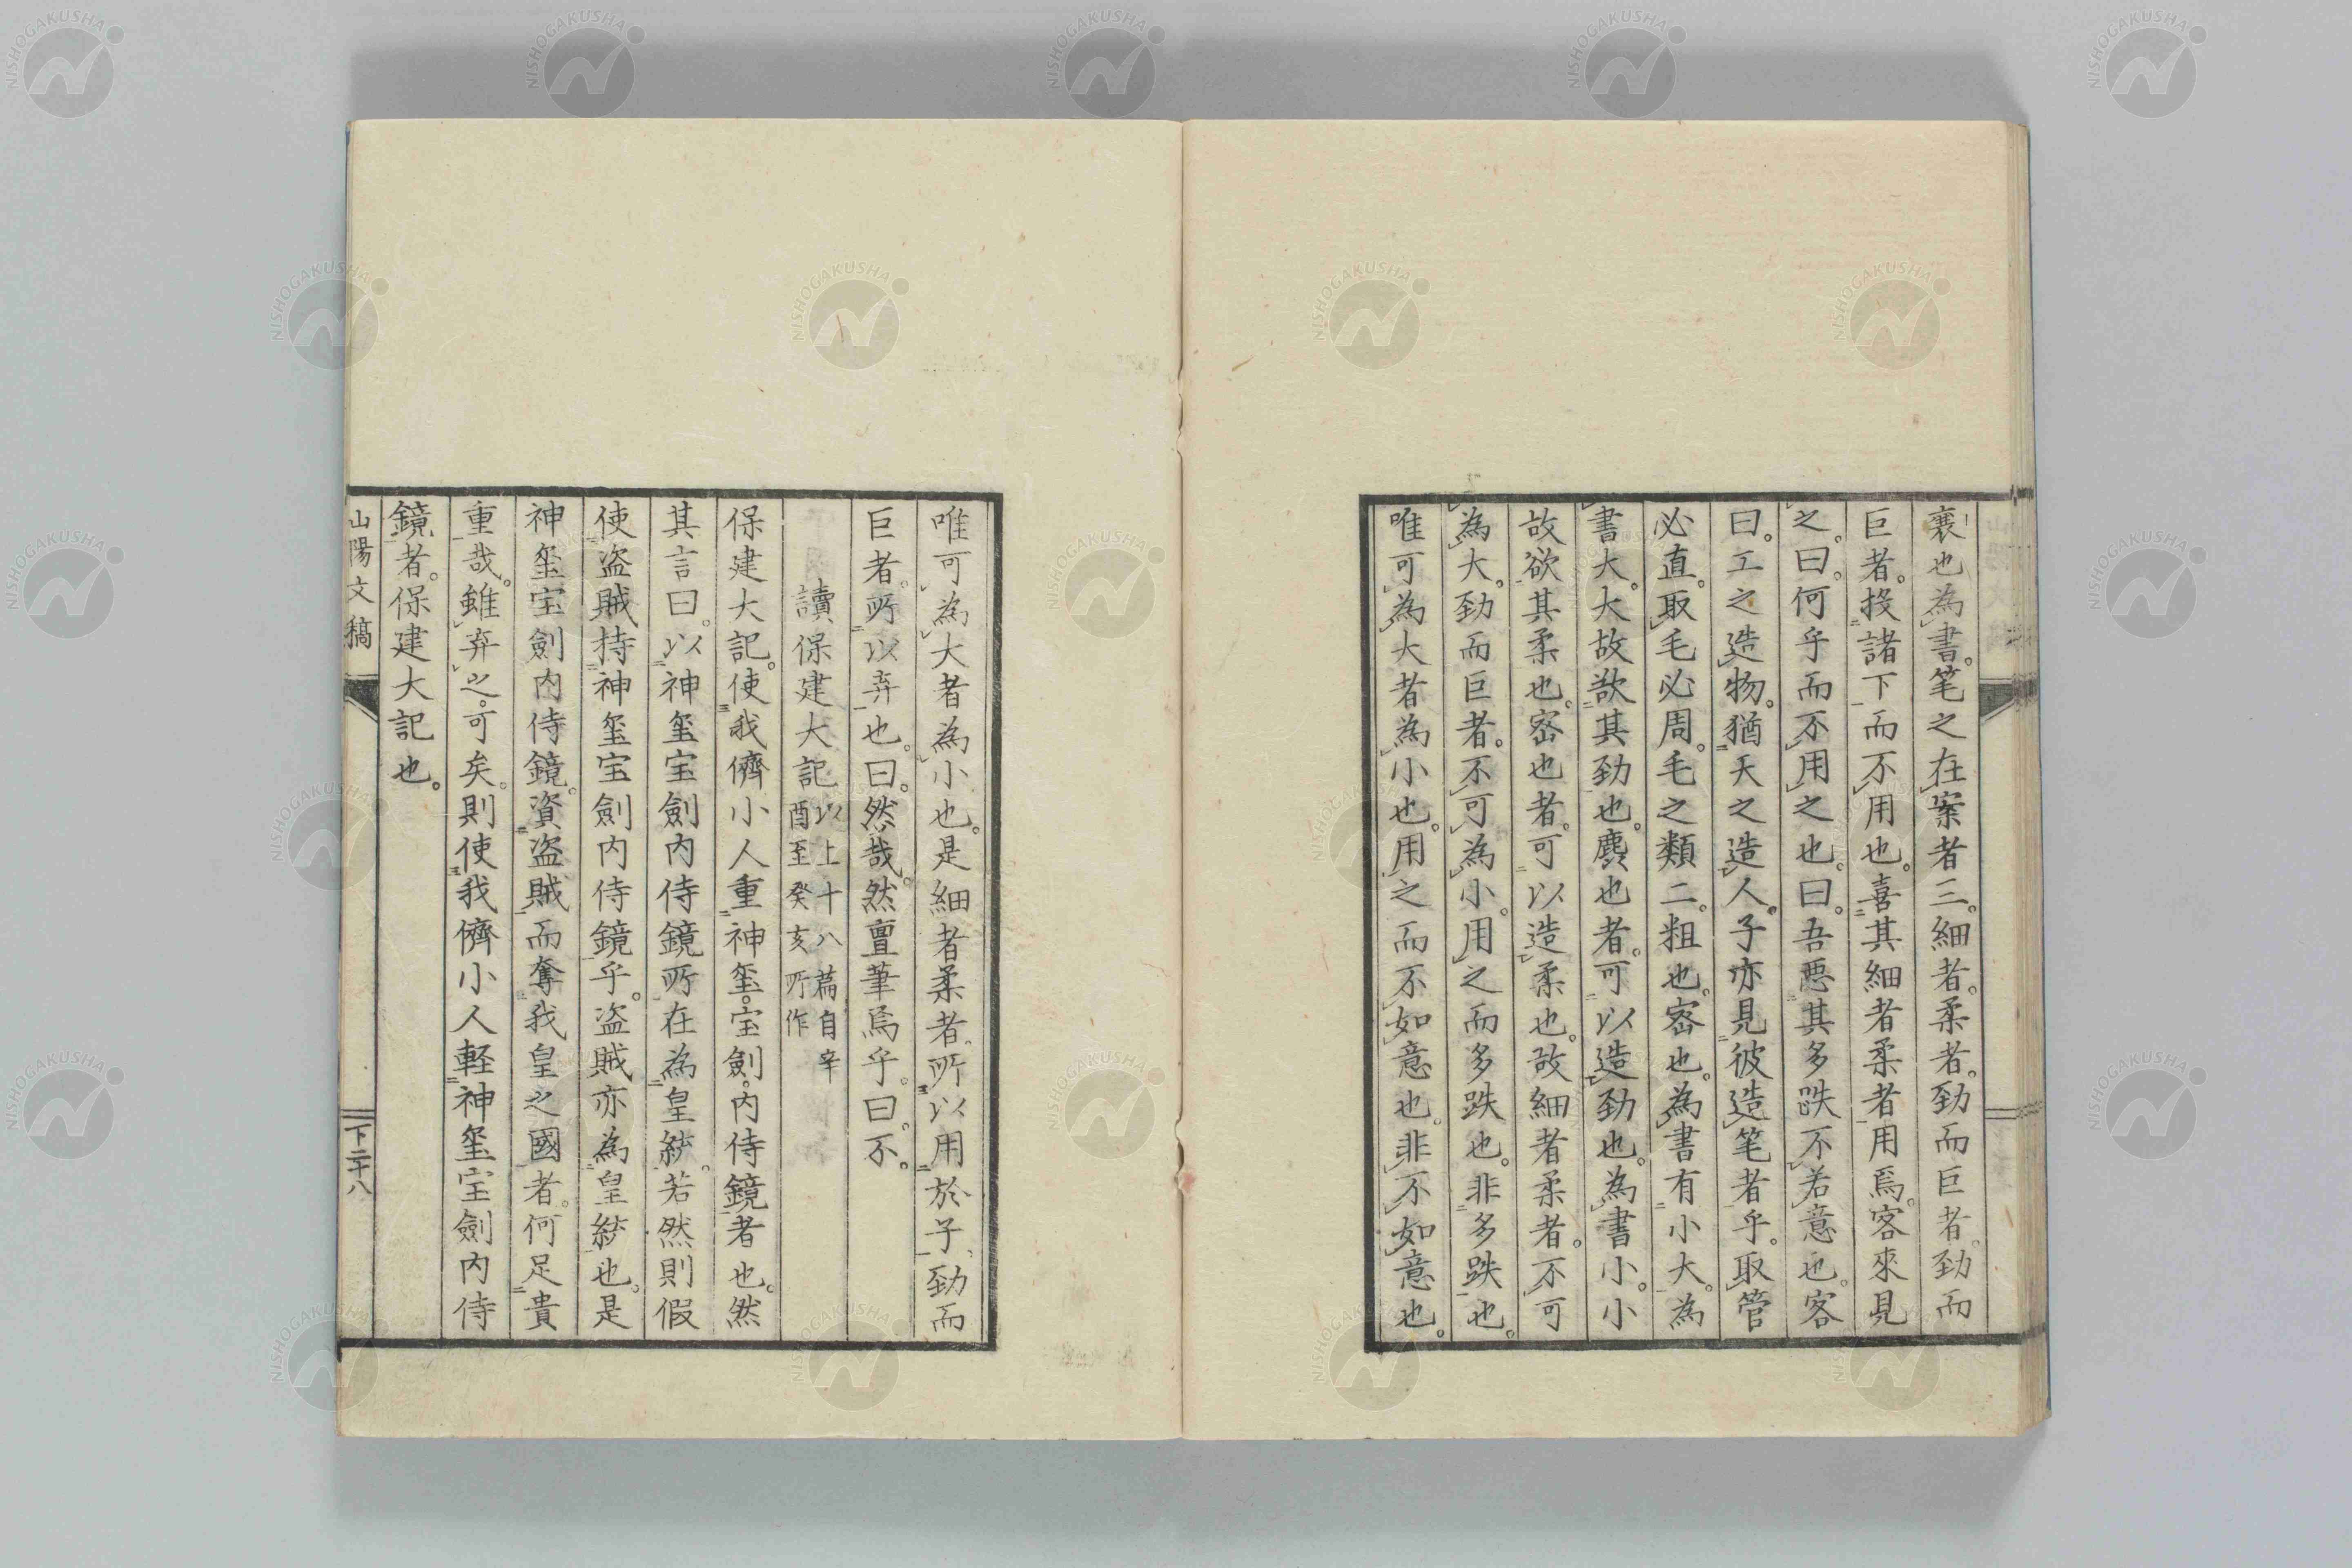 襄也為書。笔之在案者三。細者。柔者。勁而巨者。勁而
巨者。投諸下而不用也。喜其細者柔者用焉。客來見
之。曰。何乎而不用之也。曰。吾悪其多跌不若意也。客
曰。工之造物。猶天之造人。子亦見彼造笔者乎。取管
必直。取毛必周。毛之類二。粗也。密也。為書有小大。為
書大。大故欲其勁也。麤也者。可以造勁也。為書小。小
故欲其柔也。密也者。可以造柔也。故細者柔者。不可
為大。勁而巨者。不可為小。用之而多跌也。非多跌也。
唯可為大者為小也。用之而不如意也。非不如意也。
唯可為大者為小也。是細者柔者。所以用於子、勁而
巨者。所以弃也。曰。然哉。然亶筆焉乎。曰。不。
讀保建大記以上十八篇自辛酉至癸亥所作
保建大記。使我儕小人重神玺。宝劍。内侍鏡者也。然
其言曰。以神玺宝劍内侍鏡所在為皇統。若然則假
使盗賊持神玺宝劍内侍鏡乎。盗賊亦為皇統也。是
神玺宝劍内侍鏡。資盗賊而奪我皇之國者。何足貴
重哉。雖弃之。可矣。則使我儕小人軽神玺宝劍内侍
鏡者。保建大記也。
山陽文稿
下二十八
NISHOGAKUSHA